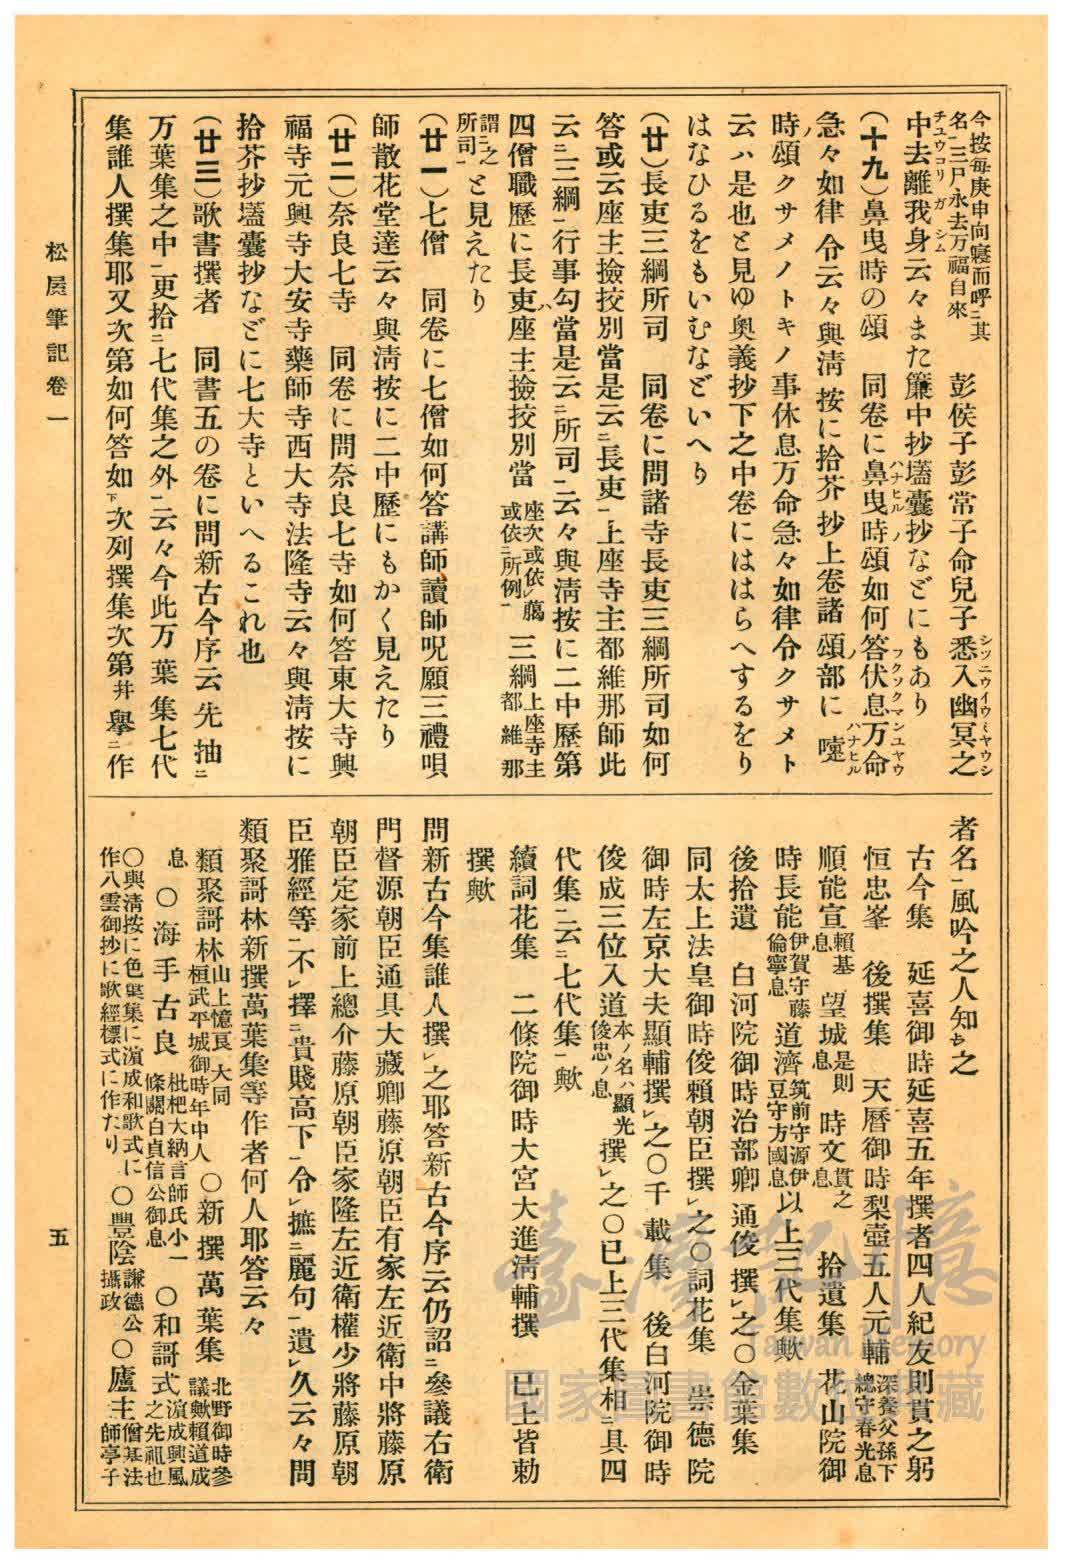 今按每庚申向寢而呼ニ其名一三尸永去万福自來　彭侯子彭常子命兒子悉入幽冥之
中去離我身云々また簾中抄壒囊抄などにもあり
(十九)鼻曳時の頌　同卷に鼻曳時頌如何答伏息万命
急々如律令云々與淸按に拾芥抄上卷諸頌部に嚔
時頌クサメノトキノ事休息万命急々如律令クサメト
云ハ是也と見ゆ奥義抄下之中卷にははらへするをり
はなひるをもいむなどいへり
(廿)長吏三綱所司　同卷に問諸寺長吏三綱所司如何
答或云座主撿挍別當是云ニ長吏一上座寺主都維那師此
云ニ三綱一行事勾當是云ニ所司一云々與淸按に二中歷第
四僧職歷に長吏ハ座主撿挍別當座次或依レ﨟或依ニ所例一　三綱上座寺主都維那
謂ニ之所司一と見えたり
(廿一)七僧　同卷に七僧如何答講師讀師呪願三禮唄
師散花堂達云々與淸按に二中歷にもかく見えたり
(廿二)奈良七寺　同卷に問奈良七寺如何答東大寺興
福寺元興寺大安寺藥師寺西大寺法隆寺云々與淸按に
拾芥抄壒囊抄などに七大寺といへるこれ也
(廿三)歌書撰者　同書五の卷に問新古今序云先抽ニ
万葉集之中一更拾ニ七代集之外一云々今此万葉集七代
集誰人撰集耶又次第如何答如下次列撰集次第幷擧ニ作
者名一風吟之人知ㇾ之
古今集　延喜御時延喜五年撰者四人紀友則貫之躬
恒忠峯　後撰集　天曆御時梨壺五人元輔深養父孫下總守春光息
順能宣賴基息　望城是則息　時文貫之息　拾遺集　花山院御
時長能伊賀守藤倫寧息道濟筑前守源伊豆守方國息以上三代集歟
後拾遺　白河院御時治部卿通俊撰レ之〇金葉集
同太上法皇御時俊賴朝臣撰レ之〇詞花集　崇德院
御時左京大夫顯輔撰レ之〇千載集　後白河院御時
俊成三位入道本ノ名ハ顯光俊忠ノ息　撰レ之〇已上三代集相ニ具四
代集一云ニ七代集一歟
續詞花集　二條院御時大宮大進淸輔撰　已上皆勅
撰歟
問新古今集誰人撰レ之耶答新古今序云仍詔ニ參議右衞
門督源朝臣通具大藏卿藤原朝臣有家左近衞中將藤原
朝臣定家前上總介藤原朝臣家隆左近衞權少將藤原朝
臣雅經等一不レ擇ニ貴賤高下一令レ摭ニ麗句一遺レ久云々問
類聚謌林新撰萬葉集等作者何人耶答云々
類聚謌林山上憶良大同桓武平城御時年中人　〇新撰萬葉集北野御時參議歟賴道成
息　〇海手古良枇杷大納言師氏小一條關白貞信公御息　〇和謌式濵成興風之先祖也
〇與淸按に色葉集に濵成和歌式に作八雲御抄に歌經標式に作たり　〇豐陰謙德公攝政　〇廬主僧基法師亭子
松屋筆記卷一
五
臺灣記憶
Taiwan Memory
國家圖書館數位典藏